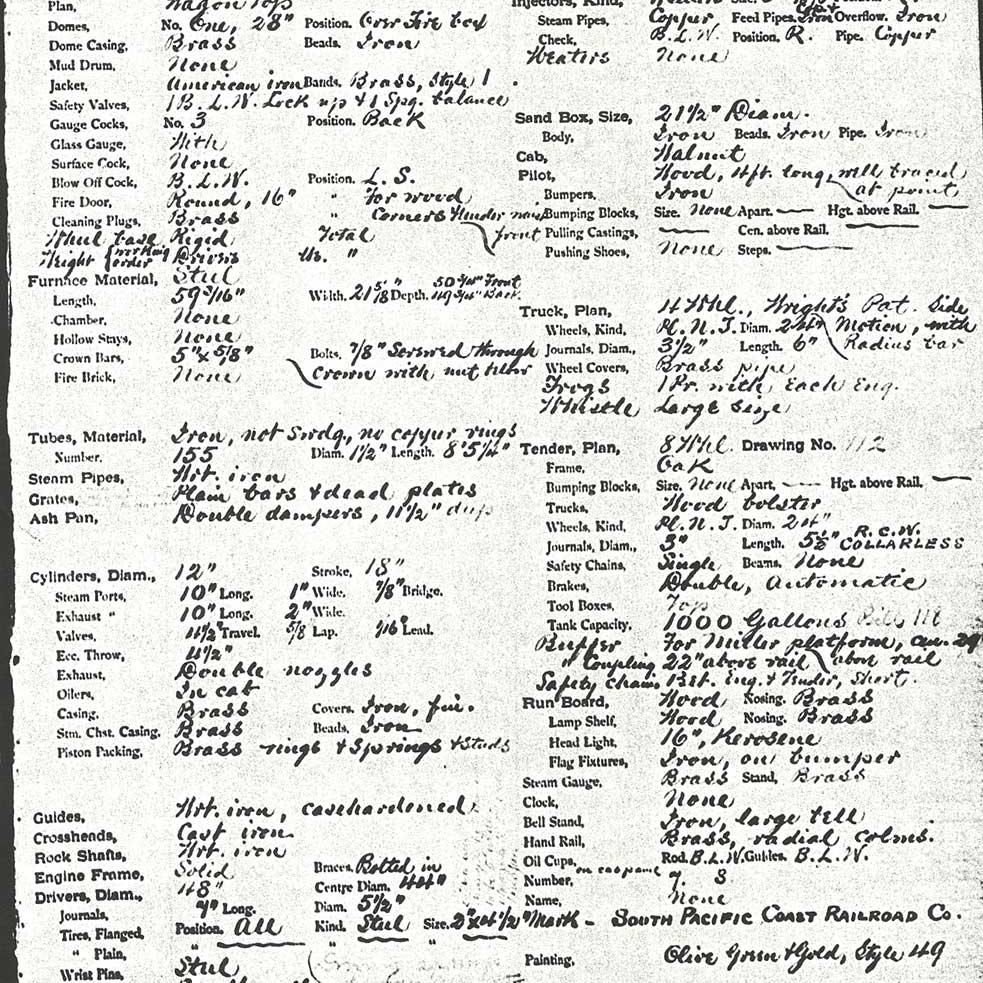 Plan, Wagon Top
Domes, No. One, 28" Position. Over Fire bed
Dome Casing, Brass Beads. Iron
Mud Drum, None
Jacket, American iron Bands. Brass, Style 1
Safety Valves, 1 B.L.W. Lock up & 1 Spg. balance
Gauge Cocks, No. 3 Position. Back
Glass Gauge, With
Surface Cock, None
Blow Off Cock, B.L.W. Position. L.S.
Fire Door, Round, 16" " For wood
Cleaning Plugs, Brass " Corners &
Wheel base Rigid Total front
Weight working order Drivers lbs. "
Furnace Material, Steel
Length, 59 3/16" Width. 21 5/8" Depth. 50 3/4" Front 49 3/4" Back
Chamber, None
Hollow Stays, None
Crown Bars, 5" x 5/8" Bolts. 7/8" Screwed through
Fire Brick, None Crown with nut below
Tubes, Material, Iron, not Swdg., no copper rings
Number, 155 Diam. 1 1/2" Length. 8' 5 1/4"
Steam Pipes, Wrt. iron
Grates, Plain bars & dead plates
Ash Pan, Double dampers, 11 1/2" deep
Cylinders, Diam., 12" Stroke, 18"
Steam Ports, 10" Long. 1" Wide. 7/8" Bridge.
Exhaust " 10" Long. 2" Wide.
Valves, 4 1/2" Travel. 5/8 Lap. 1/16" Lead.
Ecc. Throw, 4 1/2"
Exhaust, Double nozzles
Oilers, In cab
Casing, Brass Covers. Iron, fin.
Stm. Chst. Casing. Brass Beads, Iron
Piston Packing, Brass rings & Springs & Studs
Guides, Wrt. iron, casehardened
Crossheads, Cast iron
Rock Shafts, Wrt. iron
Engine Frame, Solid Braces. Bolted in
Drivers, Diam., 48" Centre Diam. 44"
Journals, 7" Long. Diam. 5 1/2"
Tires, Flanged, Position. All Kind. Steel Size. 2" x 4 1/2"
" Plain, " " "
Wrist Pins, Steel,
Injectors, Kind,
Steam Pipes, Copper, Feed Pipes. Iron Overflow. Iron
Check, B.L.W. Position. R. Pipe. Copper
Heaters None
Sand Box, Size, 21 1/2" Diam.
Body, Iron Beads. Iron Pipe. Iron
Cab, Walnut
Pilot, Wood, 4ft. long, well braced
Bumpers, Iron at point
Bumping Blocks, Size. None Apart. — Hgt. above Rail. —
Pulling Castings, — Cen. above Rail. —
Pushing Shoes, None Steps. —
Truck, Plan, 4 Whl., Wright's Pat. Side
Wheels, Kind, Pl. N. J. Diam. 24" Motion, with
Journals, Diam., 3 1/2" Length. 6" Radius bar
Wheel Covers, Brass pipe
Frogs 1 Pr. with Each Eng.
Whistle Large size
Tender, Plan, 8 Whl. Drawing No. 112
Frame, Oak
Bumping Blocks, Size. None Apart. — Hgt. above Rail. —
Trucks, Wood bolster
Wheels, Kind, Pl. N. J. Diam. 24"
Journals, Diam., 3" Length. 5 1/2" R.C.W. COLLARLESS
Safety Chains, Single Beams. None
Brakes, Double, Automatic
Tool Boxes, Top
Tank Capacity, 1000 Gallons
Buffer For Miller platform, 29
" Coupling 22" above rail above rail
Safety chains, Bet. Eng. & Tender, Short.
Run Board, Wood Nosing. Brass
Lamp Shelf, Wood Nosing. Brass
Head Light, 16", Kerosene
Flag Fixtures, Iron, on bumper
Steam Gauge, Brass Stand, Brass
Clock, None
Bell Stand, Iron, large bell
Hand Rail, Brass, radial colms.
Oil Cups, Rod. B.L.W. Guides. B.L.W.
Number, on cab panel 7. 8.
Name, None
Mark - SOUTH PACIFIC COAST RAILROAD CO.
Painting, Olive Green & Gold, Style 49